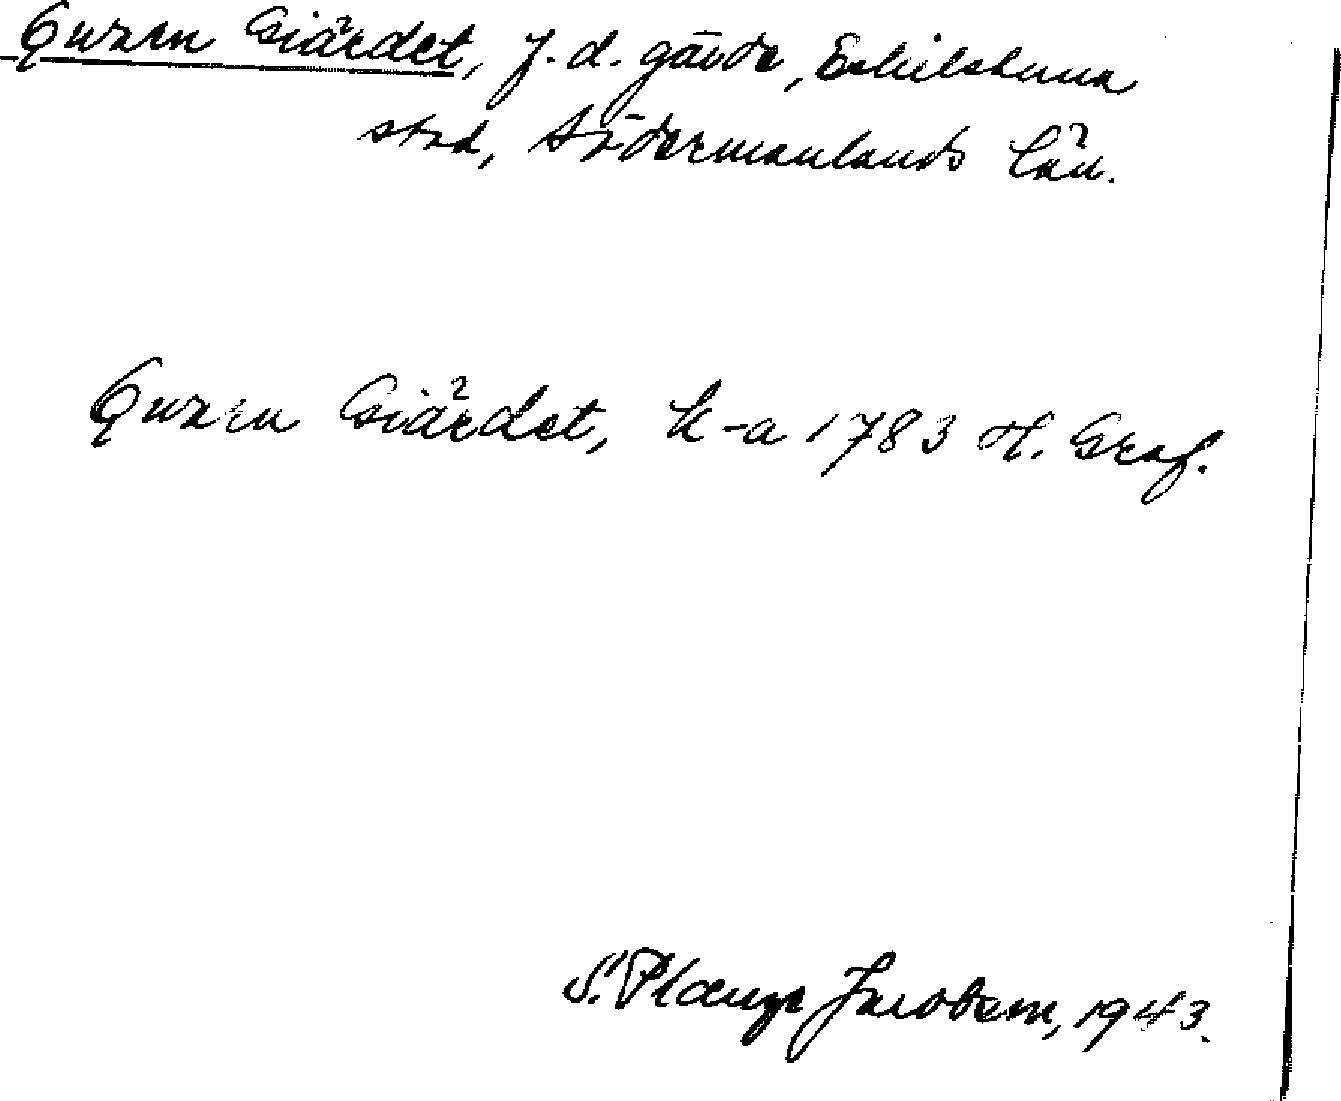 Qwarn Giärdet, f. d. gärde, Eskilstuna
stad, Södermanlands län.
Qwarn Giärdet, k-a 1783 H. Graf.
S. Jacobson, 1943.